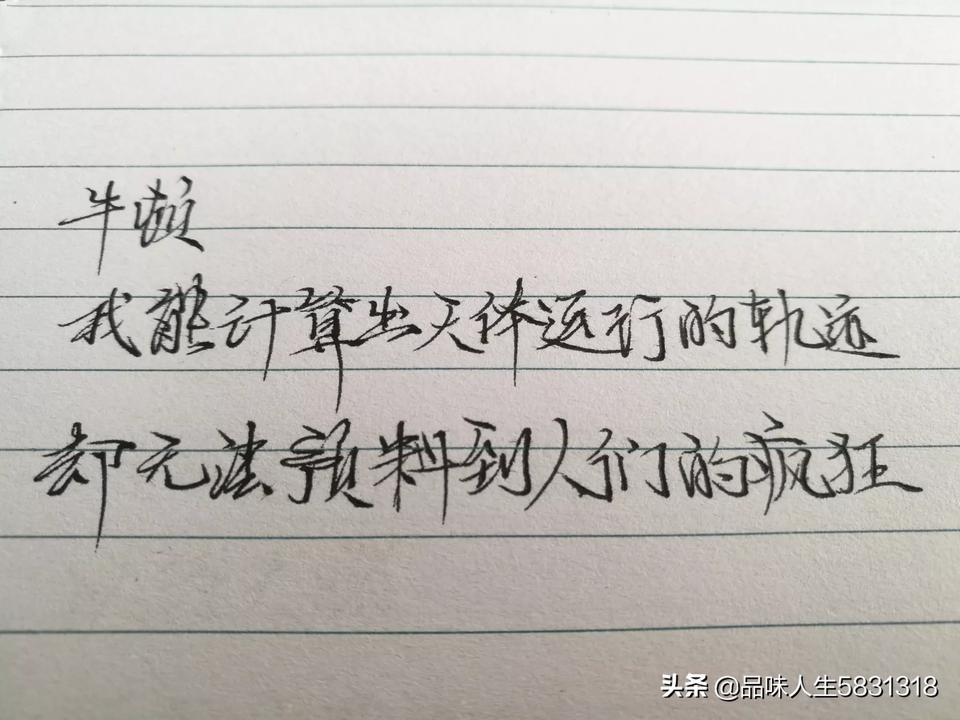 牛顿
我能计算出天体运行的轨迹
却无法预料到人们的疯狂
头条 @品味人生5831318